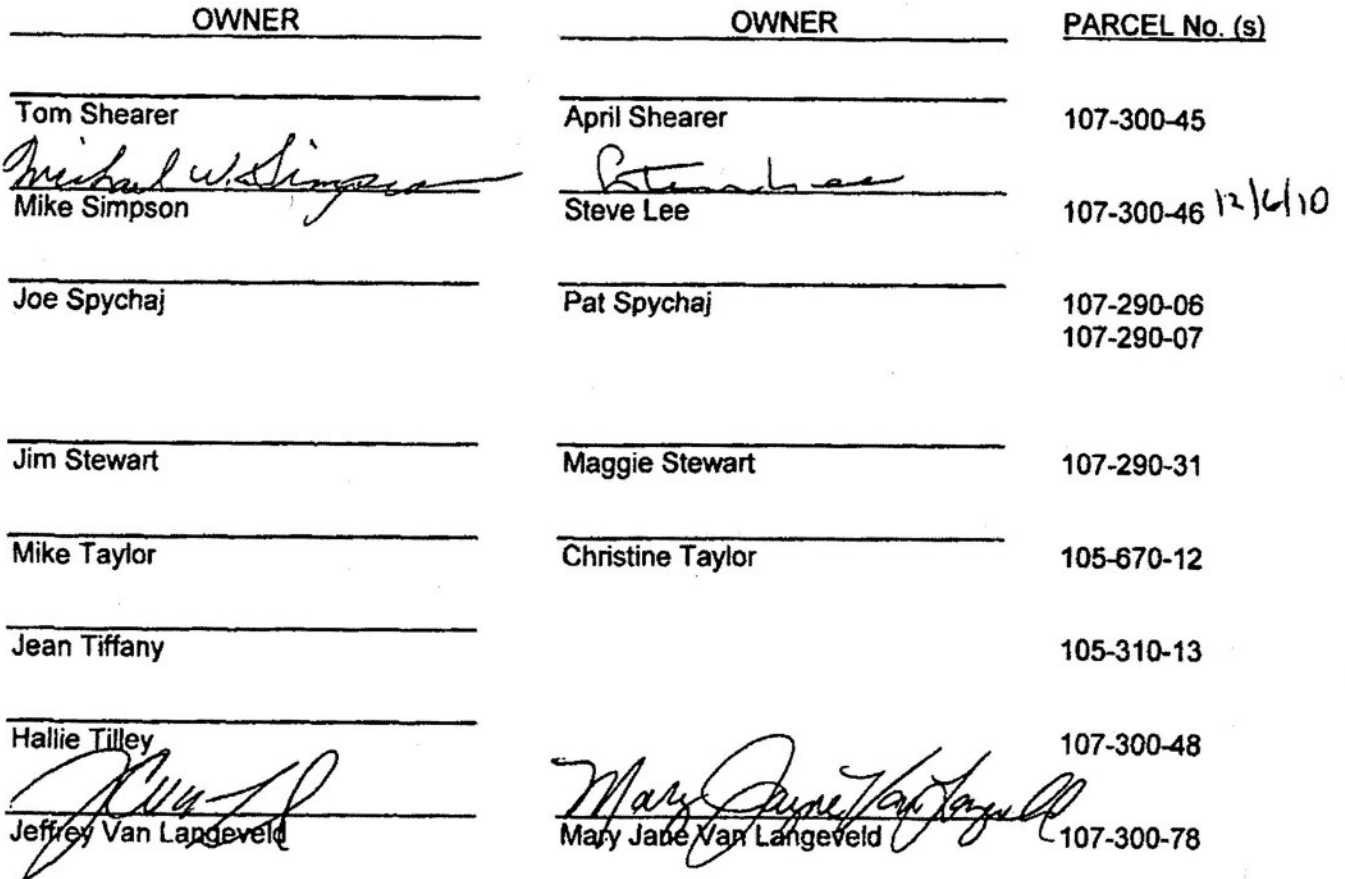 OWNER OWNER PARCEL No. (s)
Tom Shearer April Shearer 107-300-45
Michael W. Simpson Steven Lee
Mike Simpson Steve Lee 107-300-46 12/6/10
Joe Spychaj Pat Spychaj 107-290-06
107-290-07
Jim Stewart Maggie Stewart 107-290-31
Mike Taylor Christine Taylor 105-670-12
Jean Tiffany 105-310-13
Hallie Tilley 107-300-48
Mary Jayne Van Langeveld
Jeffrey Van Langeveld Mary Jane Van Langeveld 107-300-78